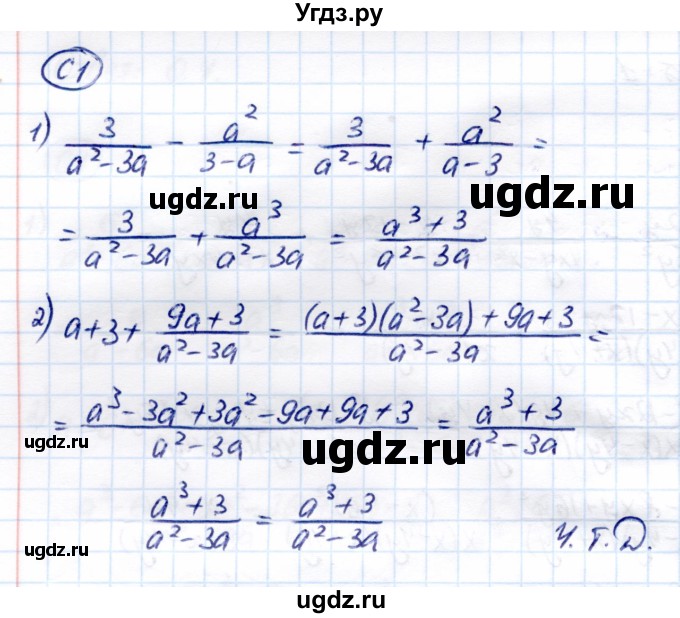 Угдз.ру
С1
1) 3/(a²-3a) - a²/(3-a) = 3/(a²-3a) + a²/(a-3) =
ugdz.ru ugdz.ru
= 3/(a²-3a) + a³/(a²-3a) = (a³+3)/(a²-3a)
2) a+3+ (9a+3)/(a²-3a) = ((a+3)(a²-3a)+9a+3)/(a²-3a) =
= (a³-3a²+3a²-9a+9a+3)/(a²-3a) = (a³+3)/(a²-3a)
ugdz.ru ugdz.ru
(a³+3)/(a²-3a) = (a³+3)/(a²-3a) Ч.Т.Д.
ugdz.ru ugdz.ru
ugdz.ru